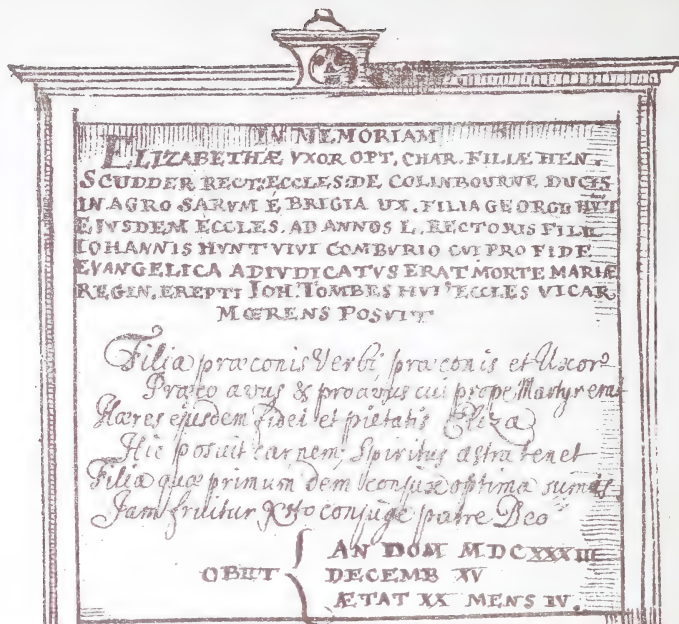 IN MEMORIAM
ELIZABETHÆ VXOR OPT, CHAR. FILIÆ HEN.
SCUDDER RECT: ECCLES: DE COLINBOURNE DUCIS
IN AGRO SARVM E BRIGIA UX. FILIA GEORGII HVT
EJVSDEM ECCLES. AD ANNOS L. RECTORIS FILII
IOHANNIS HVNT VIVI COMBURIO CVI PRO FIDE
EVANGELICA ADIVDICATVS ERAT MORTE MARIÆ
REGIN. EREPTI IOH. TOMBES HVIꝰ ECCLES VICAR
MŒRENS POSVIT
Filia præconis Verbi, præconis et Uxor
Præco avus & proavus cui prope Martyr erat
Hæres ejusdem fidei et pietatis Eliza
Hic posuit carnem; Spiritus astra tenet
Filia quæ primum dem conjux optima
Jam fruitur Xto conjuge patre Deo
OBIIT
AN DOM MDCXXXIII
DECEMB XV
ÆTAT XX MENS IV.